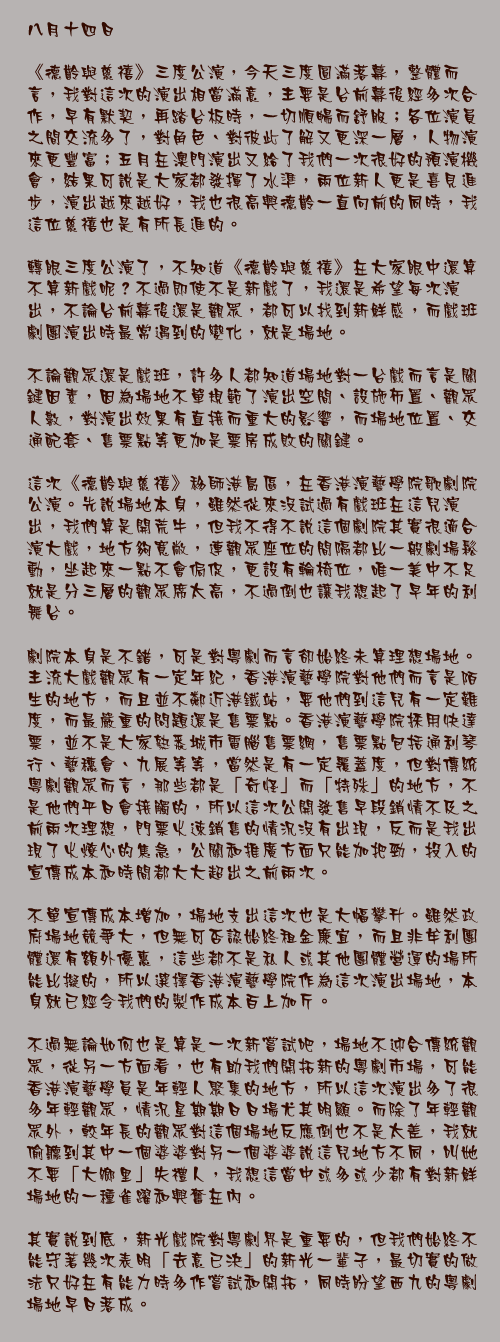 八月十四日
《德齡與慈禧》三度公演，今天三度圓滿落幕，整體而
言，我對這次的演出相當滿意，主要是台前幕後經多次合
作，早有默契，再踏台板時，一切順暢而舒服；各位演員
之間交流多了，對角色、對彼此了解又更深一層，人物演
來更豐富；五月在澳門演出又給了我們一次很好的預演機
會，結果可說是大家都發揮了水準，兩位新人更是喜見進
步，演出越來越好，我也很高興德齡一直向前的同時，我
這位慈禧也是有所長進的。
轉眼三度公演了，不知道《德齡與慈禧》在大家眼中還算
不算新戲呢？不過即使不是新戲了，我還是希望每次演
出，不論台前幕後還是觀眾，都可以找到新鮮感，而戲班
劇團演出時最常遇到的變化，就是場地。
不論觀眾還是戲班，許多人都知道場地對一台戲而言是關
鍵因素，因為場地不單規範了演出空間、設施布置、觀眾
人數，對演出效果有直接而重大的影響，而場地位置、交
通配套、售票點等更加是票房成敗的關鍵。
這次《德齡與慈禧》移師港島區，在香港演藝學院歌劇院
公演。先說場地本身，雖然從來沒試過有戲班在這兒演
出，我們算是開荒牛，但我不得不說這個劇院其實很適合
演大戲，地方夠寬敞，連觀眾座位的間隔都比一般劇場鬆
動，坐起來一點不會侷促，更設有輪椅位，唯一美中不足
就是分三層的觀眾席太高，不過倒也讓我想起了早年的利
舞台。
劇院本身是不錯，可是對粵劇而言卻始終未算理想場地。
主流大戲觀眾有一定年紀，香港演藝學院對他們而言是陌
生的地方，而且並不鄰近港鐵站，要他們到這兒有一定難
度，而最嚴重的問題還是售票點。香港演藝學院採用快達
票，並不是大家熟悉城市電腦售票網，售票點包括通利琴
行、藝穗會、九展等等，當然是有一定覆蓋度，但對傳統
粵劇觀眾而言，那些都是「奇怪」而「特殊」的地方，不
是他們平日會接觸的，所以這次公開發售早段銷情不及之
前兩次理想，門票火速銷售的情況沒有出現，反而是我出
現了火燎心的焦急，公關和推廣方面只能加把勁，投入的
宣傳成本和時間都大大超出之前兩次。
不單宣傳成本增加，場地支出這次也是大幅攀升。雖然政
府場地競爭大，但無可否認始終租金廉宜，而且非牟利團
體還有額外優惠，這些都不是私人或其他團體營運的場所
能比擬的，所以選擇香港演藝學院作為這次演出場地，本
身就已經令我們的製作成本百上加斤。
不過無論如何也是算是一次新嘗試吧，場地不迎合傳統觀
眾，從另一方面看，也有助我們開拓新的粵劇市場，可能
香港演藝學員是年輕人聚集的地方，所以這次演出多了很
多年輕觀眾，情況星期期日日場尤其明顯。而除了年輕觀
眾外，較年長的觀眾對這個場地反應倒也不是太差，我就
偷聽到其中一個婆婆對另一個婆婆說這兒地方不同，叫她
不要「大鄉里」失禮人，我想這當中或多或少都有對新鮮
場地的一種雀躍和興奮在內。
其實說到底，新光戲院對粵劇界是重要的，但我們始終不
能守著幾次表明「去意已決」的新光一輩子，最切實的做
法只好在有能力時多作嘗試和開拓，同時盼望西九的粵劇
場地早日落成。